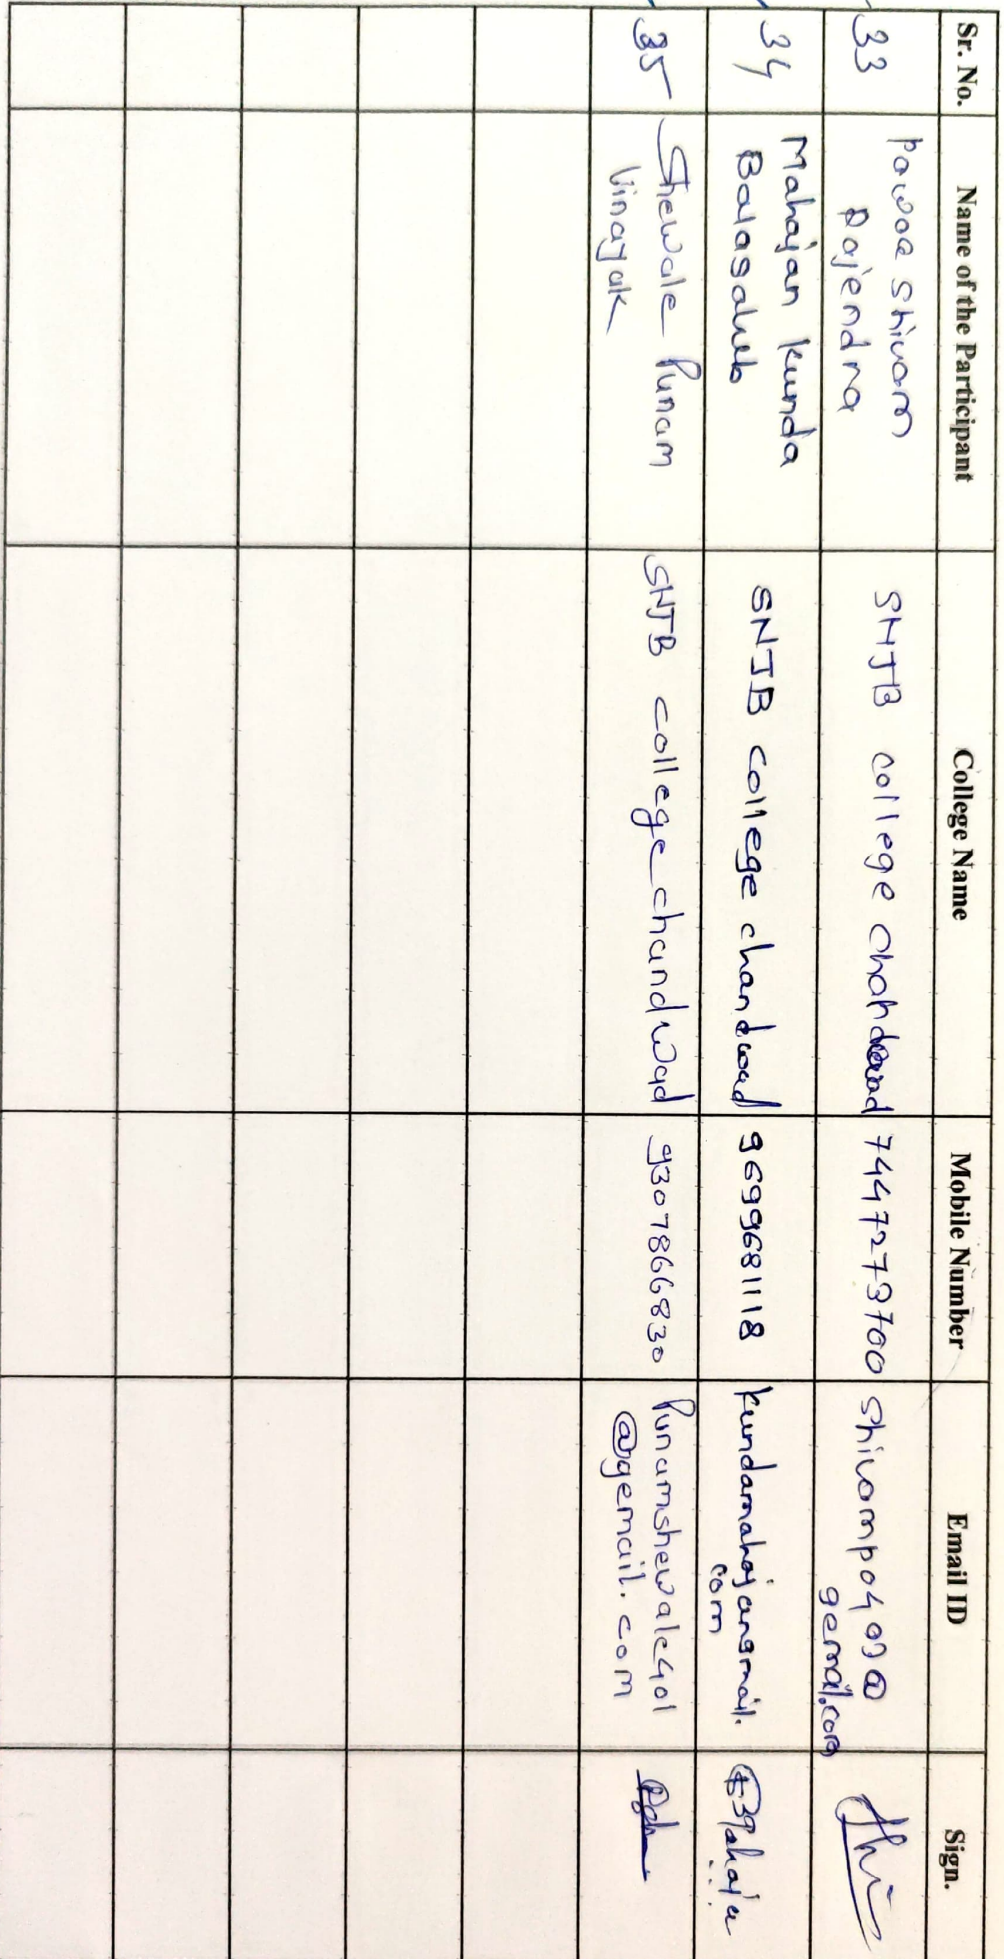 Sr. No. Name of the Participant College Name Mobile Number Email ID Sign.
33 Pawar Shivam SNJB college Chandwad 7447273700 Shivampo409@
Rajendra gemail.com
34 Mahajan Kunda SNJB college chandwad 9699681118 kundamahajangmail.
Balasaheb com
35 Shewale Punam SNJB college chandwad 9307866830 Punamshewale401
Vinayak @gemail.com